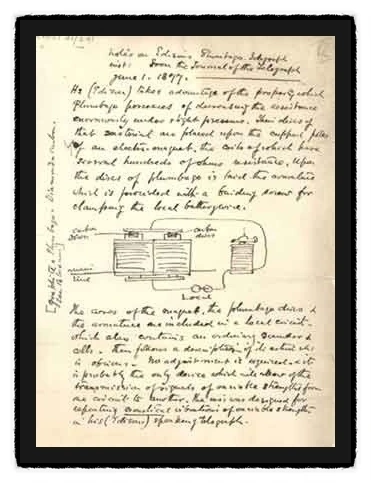 notes on Edison's Plumbago Telegraph
inst. From the Journal of the Telegraph
June 1. 1877.
He (Edison) takes advantage of the property which
Plumbago possesses of decreasing its resistance
enormously under slight pressure. Thin discs of
that material are placed upon the cupped poles
of an electro-magnet, the coils of which have
several hundreds of ohms resistance. Upon
the discs of plumbago is laid the armature
which is provided with a binding screw for
clamping the local battery wire.
carbon
carbon
discs
main
line
Local
The cores of the magnet, the plumbago discs &
the armature are included in a local circuit.
which also contains an ordinary sounder &
cells. Then follows a description of its action wh.
is obvious. No adjustment is required. it
is probably the only device which will allow of the
transmission of signals of variable strengths from
one circuit to another. the was designed for
repeating acoustical vibrations of variable strengths
in his (Edison's) speaking telegraph.
[graphite = Plumbago =